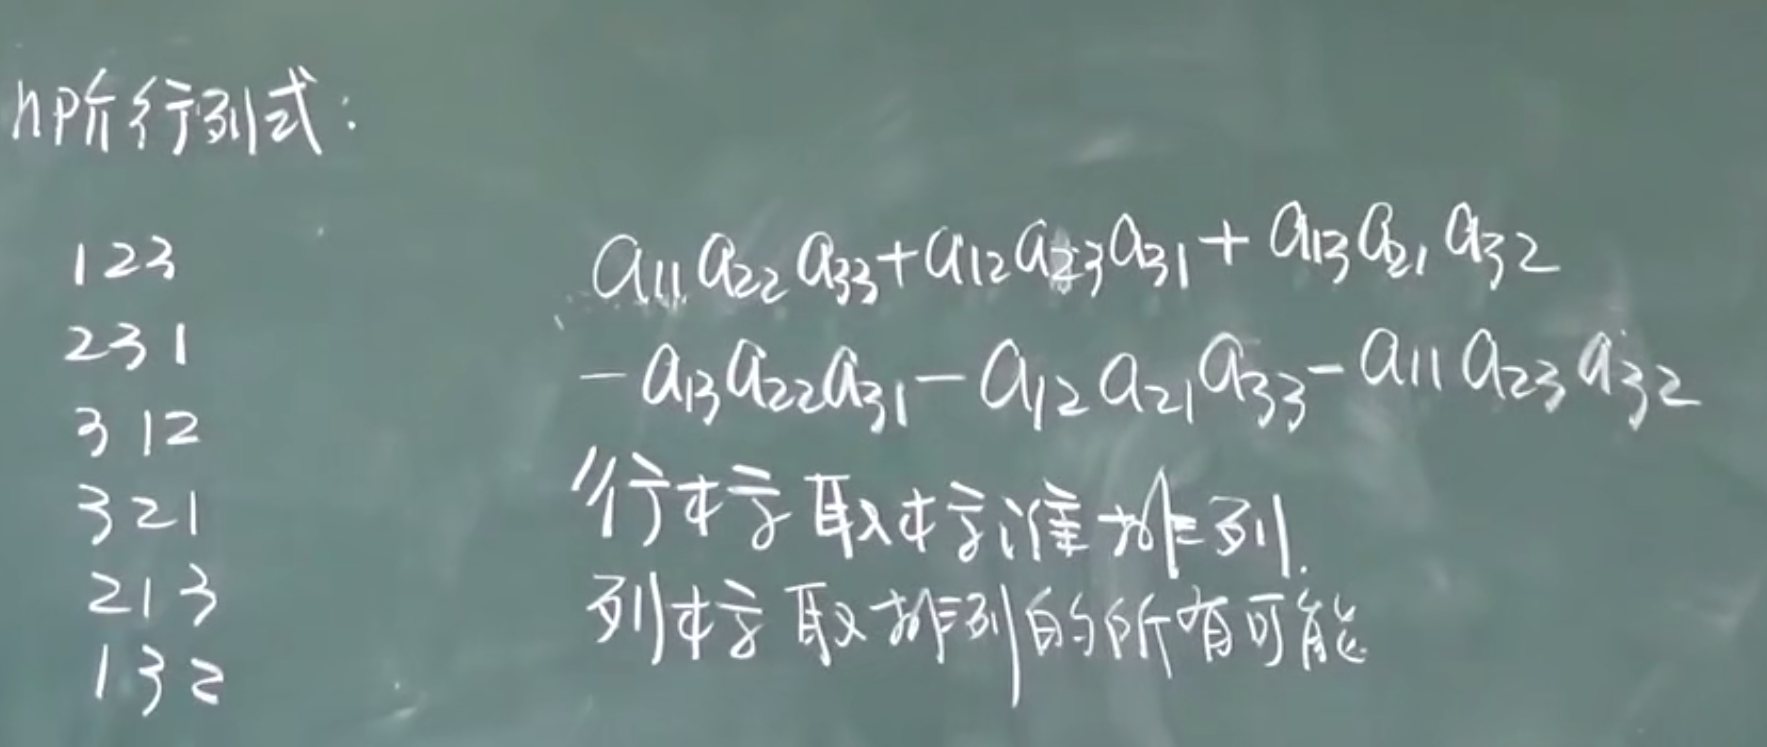 n阶行列式:
123
231
312
321
213
132
a₁₁a₂₂a₃₃+a₁₂a₂₃a₃₁+a₁₃a₂₁a₃₂
-a₁₃a₂₂a₃₁-a₁₂a₂₁a₃₃-a₁₁a₂₃a₃₂
行标取标准排列.
列标取排列的所有可能